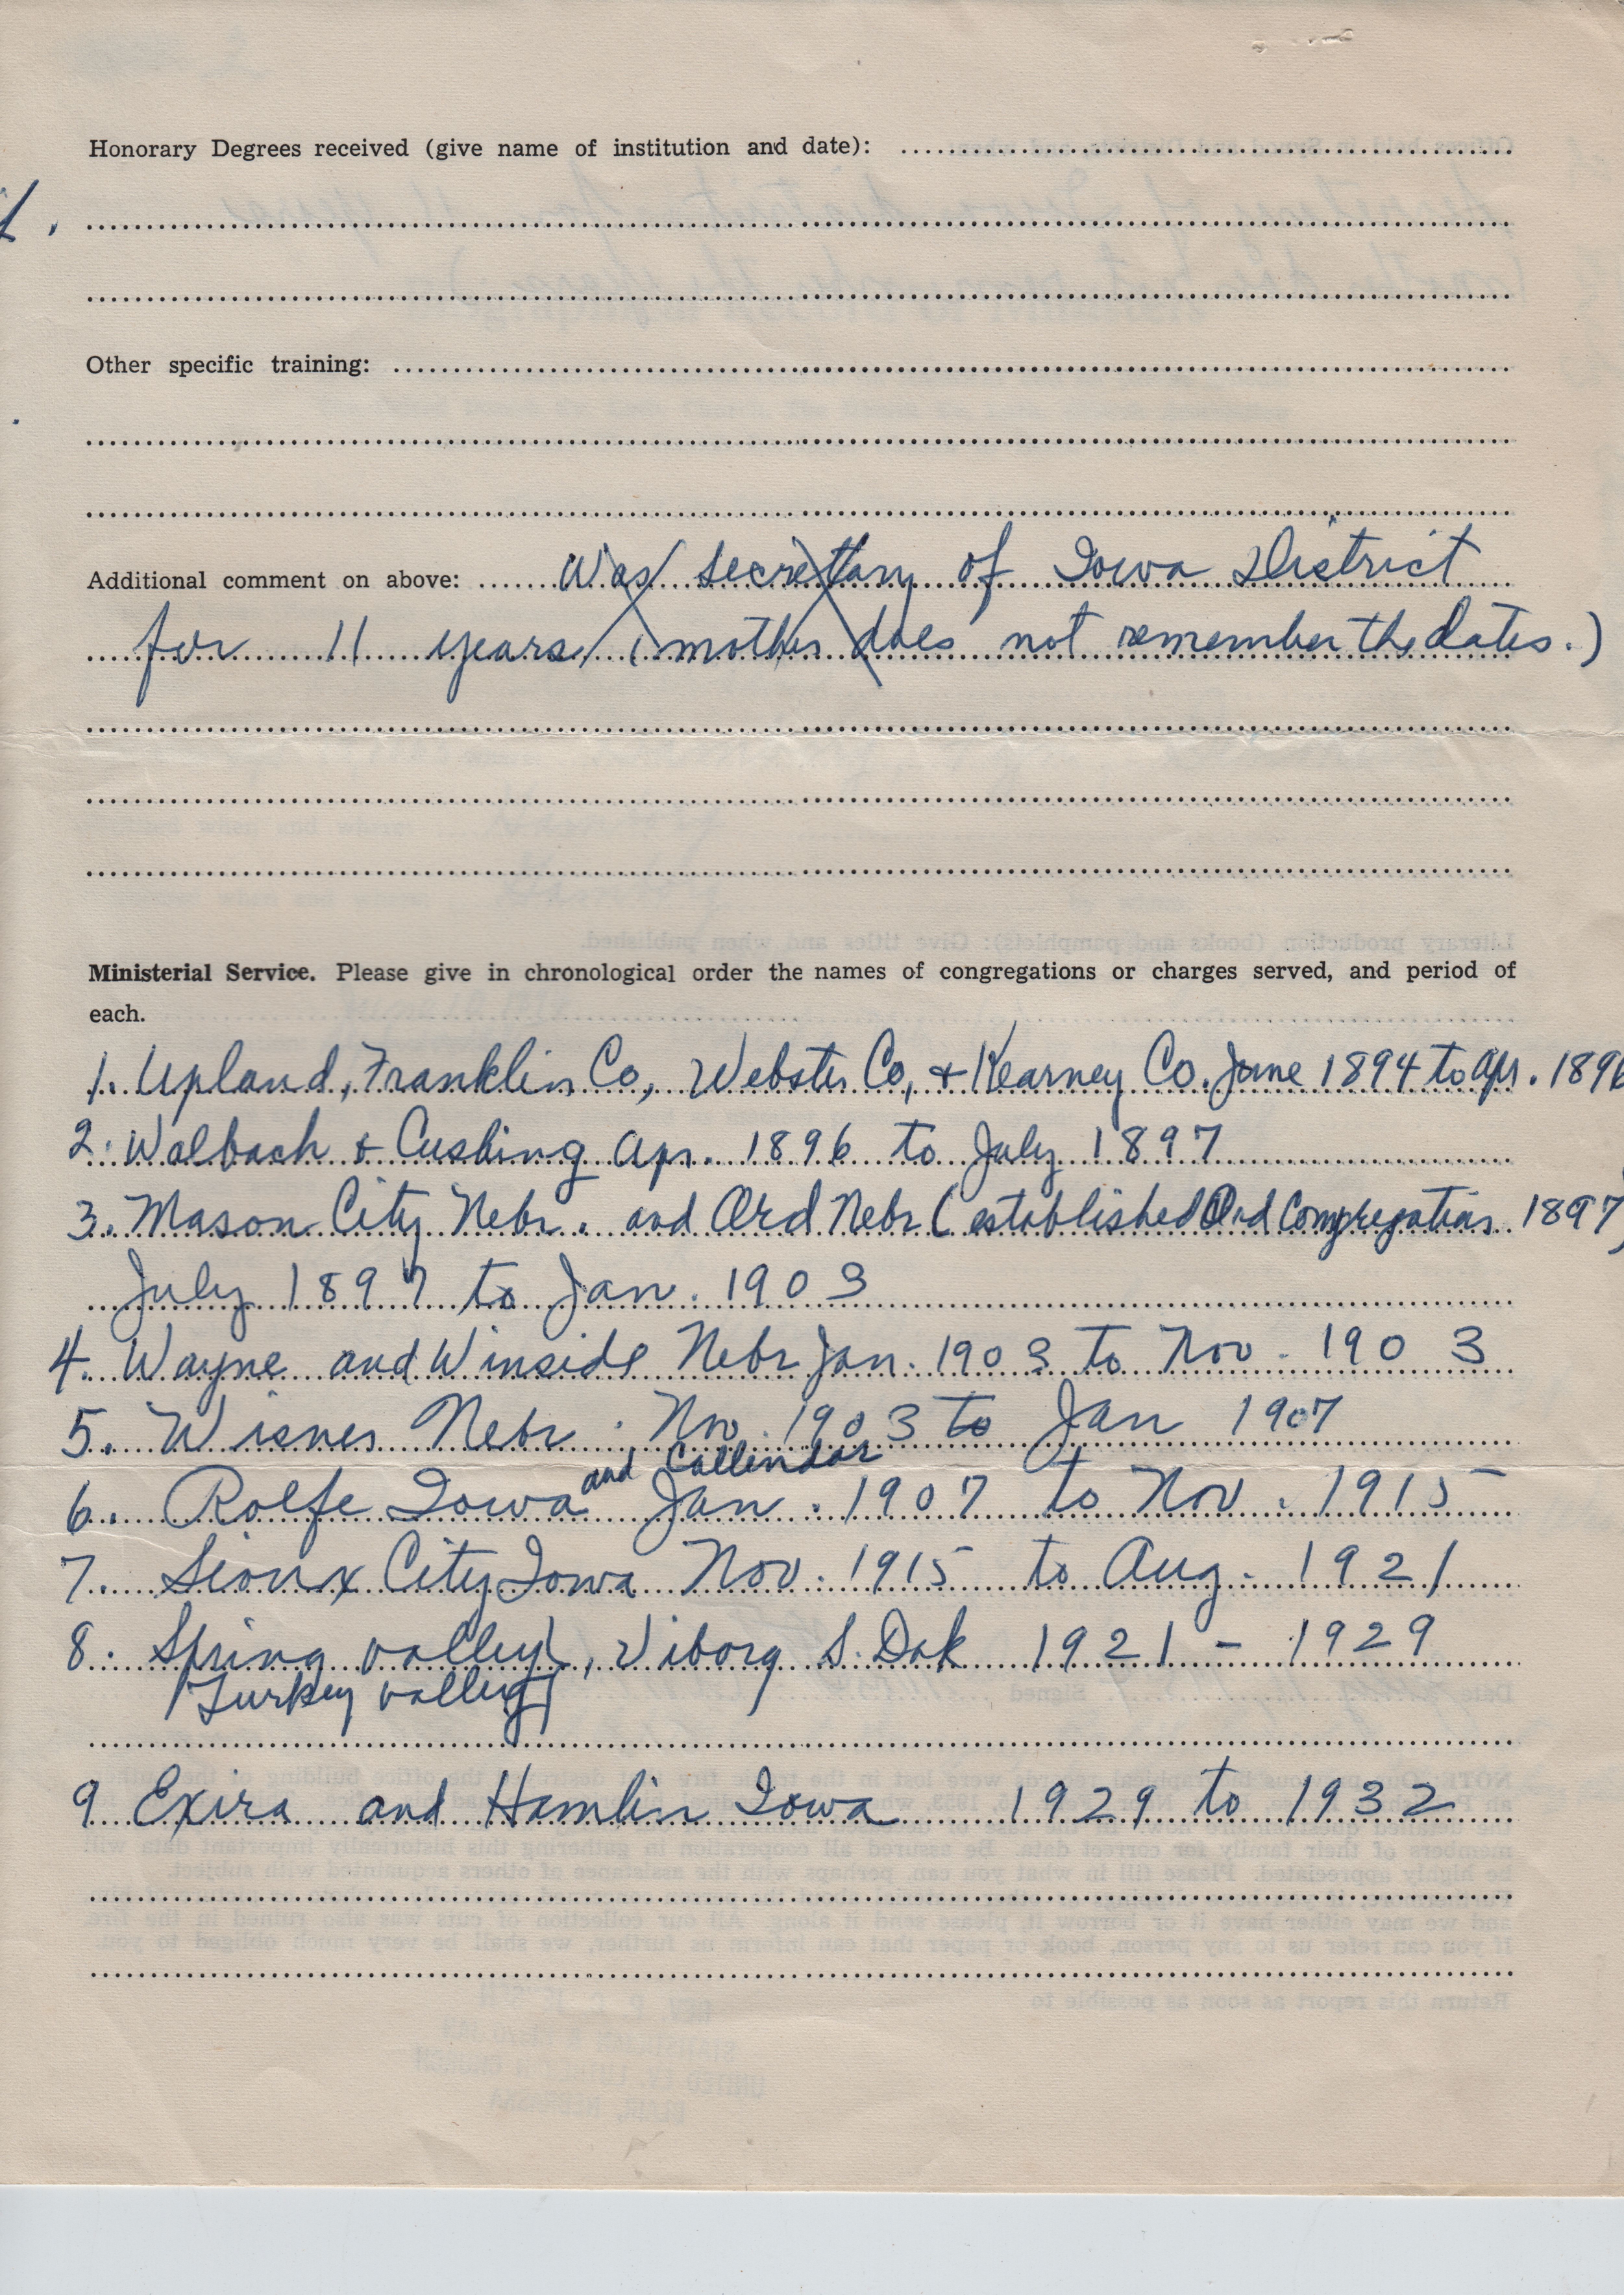 Honorary Degrees received (give name of institution and date):
Other specific training:
Additional comment on above: Was secretary of Iowa District
for 11 years (mother does not remember the dates.)
Ministerial Service. Please give in chronological order the names of congregations or charges served, and period of
each.
1. Upland, Franklin Co, Webster Co, & Kearney Co. June 1894 to Apr. 1896
2. Wolbach & Cushing Apr. 1896 to July 1897
3. Mason City Nebr. and Ord Nebr (established Ord Congregation 1897)
July 1897 to Jan. 1903
4. Wayne and Winside Nebr Jan. 1903 to Nov. 1903
5. Wisner Nebr. Nov. 1903 to Jan 1907
and Callendar
6. Rolfe Iowa Jan. 1907 to Nov. 1915
7. Sioux City Iowa Nov. 1915 to Aug. 1921
8. Spring valley, Viborg S. Dak 1921 - 1929
Turkey valley
9 Exira and Hamlin Iowa 1929 to 1932